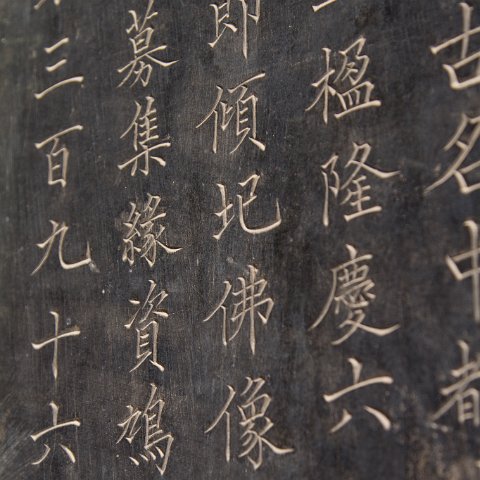 古名中都
楹隆慶六
即傾圮佛像
募集緣資鳩
三百九十六